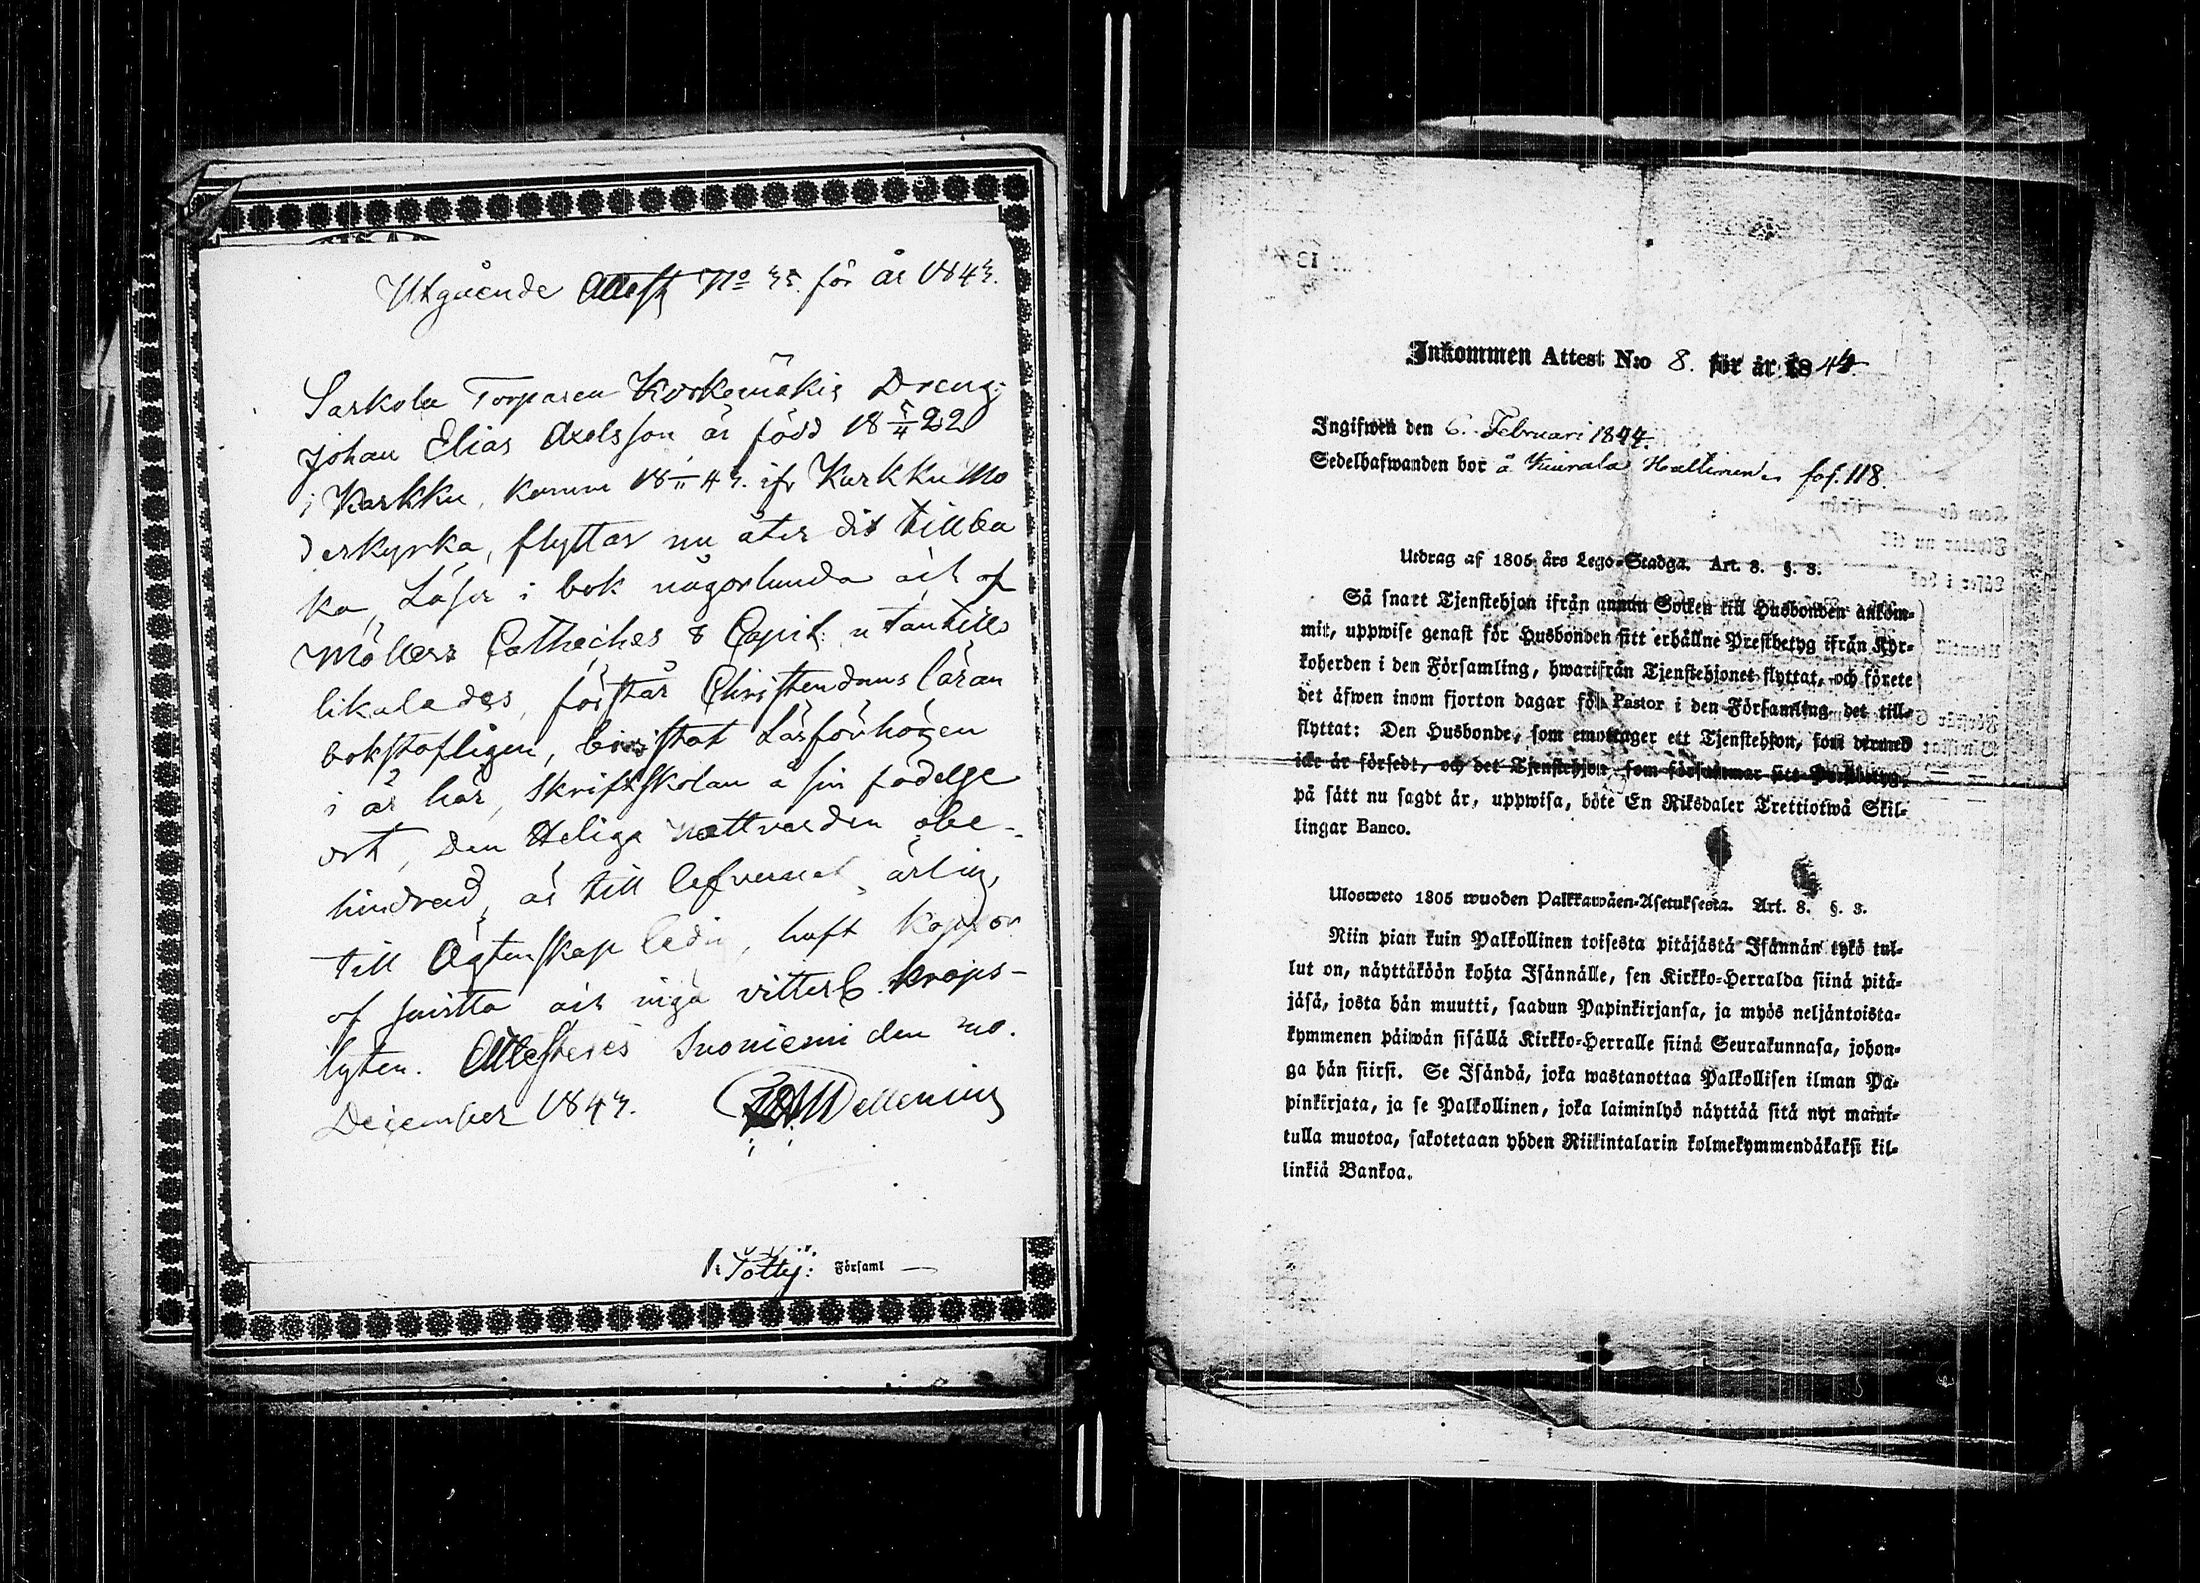 Utgående Attest No 35. för år 1843.
Sarkola Torparen Korkemäkis Dreng
Johan Elias Axelsson är född 18 5/4 22
i Karkku, komm 18 11 43. ifr Karkku Mo
derkyrka, flyttar nu åter dit tillba
ka, Läser i bok någorlunda och af
Möllers Catheches 8 Capit: utantill
likaledes, förstår Christendoms läran
bokstafligen, bevistat Läsförhören
i år här, Skriftskolan å sin födelse
ort, Den Heliga Nattvarden obe-
hindrad, är till lefvernet ärlig,
till Ägtenskap ledig, haft Koppor
af smitta och inga vitterl. krops-
lyten. Attesteres Suoniemi den 20.
December 1843. Wellenius
Församl
Inkommen Attest N:o 8. för år 1844.
Ingifwen den 6. Februari 1844.
Sedelhafwanden bor å Kiurala Hallinen fol. 118.
Utdrag af 1805 års Lego-Stadga. Art. 8. §. 3.
Så snart Tjenstehjon ifrån annan Socken till Husbonden ankom-
mit, uppwise genast för Husbonden sitt erhållne Prestbetyg ifrån Kyr-
koherden i den Församling, hwarifrån Tjenstehjonet flyttat, och förete
det äfwen inom fjorton dagar för Pastor i den Församling det till-
flyttat: Den Husbonde, som emottager ett Tjenstehjon, som dermed
icke är försedt, och det Tjenstehjon, som försummar sitt Prestbetyg,
på sätt nu sagdt är, uppwisa, böte En Riksdaler Trettiotwå Skil-
lingar Banco.
Ulosweto 1805 wuoden Palkkawäen-Asetuksesta. Art. 8. §. 3.
Niin pian kuin Palkollinen toisesta pitäjästä Isännän tykö tul-
lut on, näyttäköön kohta Isännälle, sen Kirkko-Herralda siinä pitä-
jäsä, josta hän muutti, saadun Papinkirjansa, ja myös neljäntoista-
kymmenen päiwän sisällä Kirkko-Herralle siinä Seurakunnasa, johon-
ga hän siirsi. Se Isändä, joka wastanottaa Palkollisen ilman Pa-
pinkirjata, ja se Palkollinen, joka laiminlyö näyttää sitä nyt maini-
tulla muotoa, sakotetaan yhden Riikintalarin kolmekymmendäkaksi kil-
linkiä Bankoa.